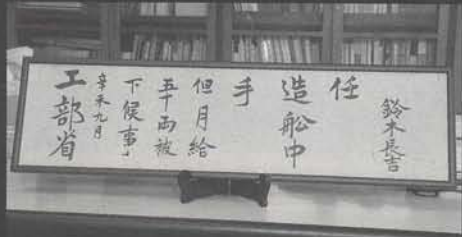 鈴木長吉
任
造船中
手
但月給
五十両被
下候事
辛未九月
工部省